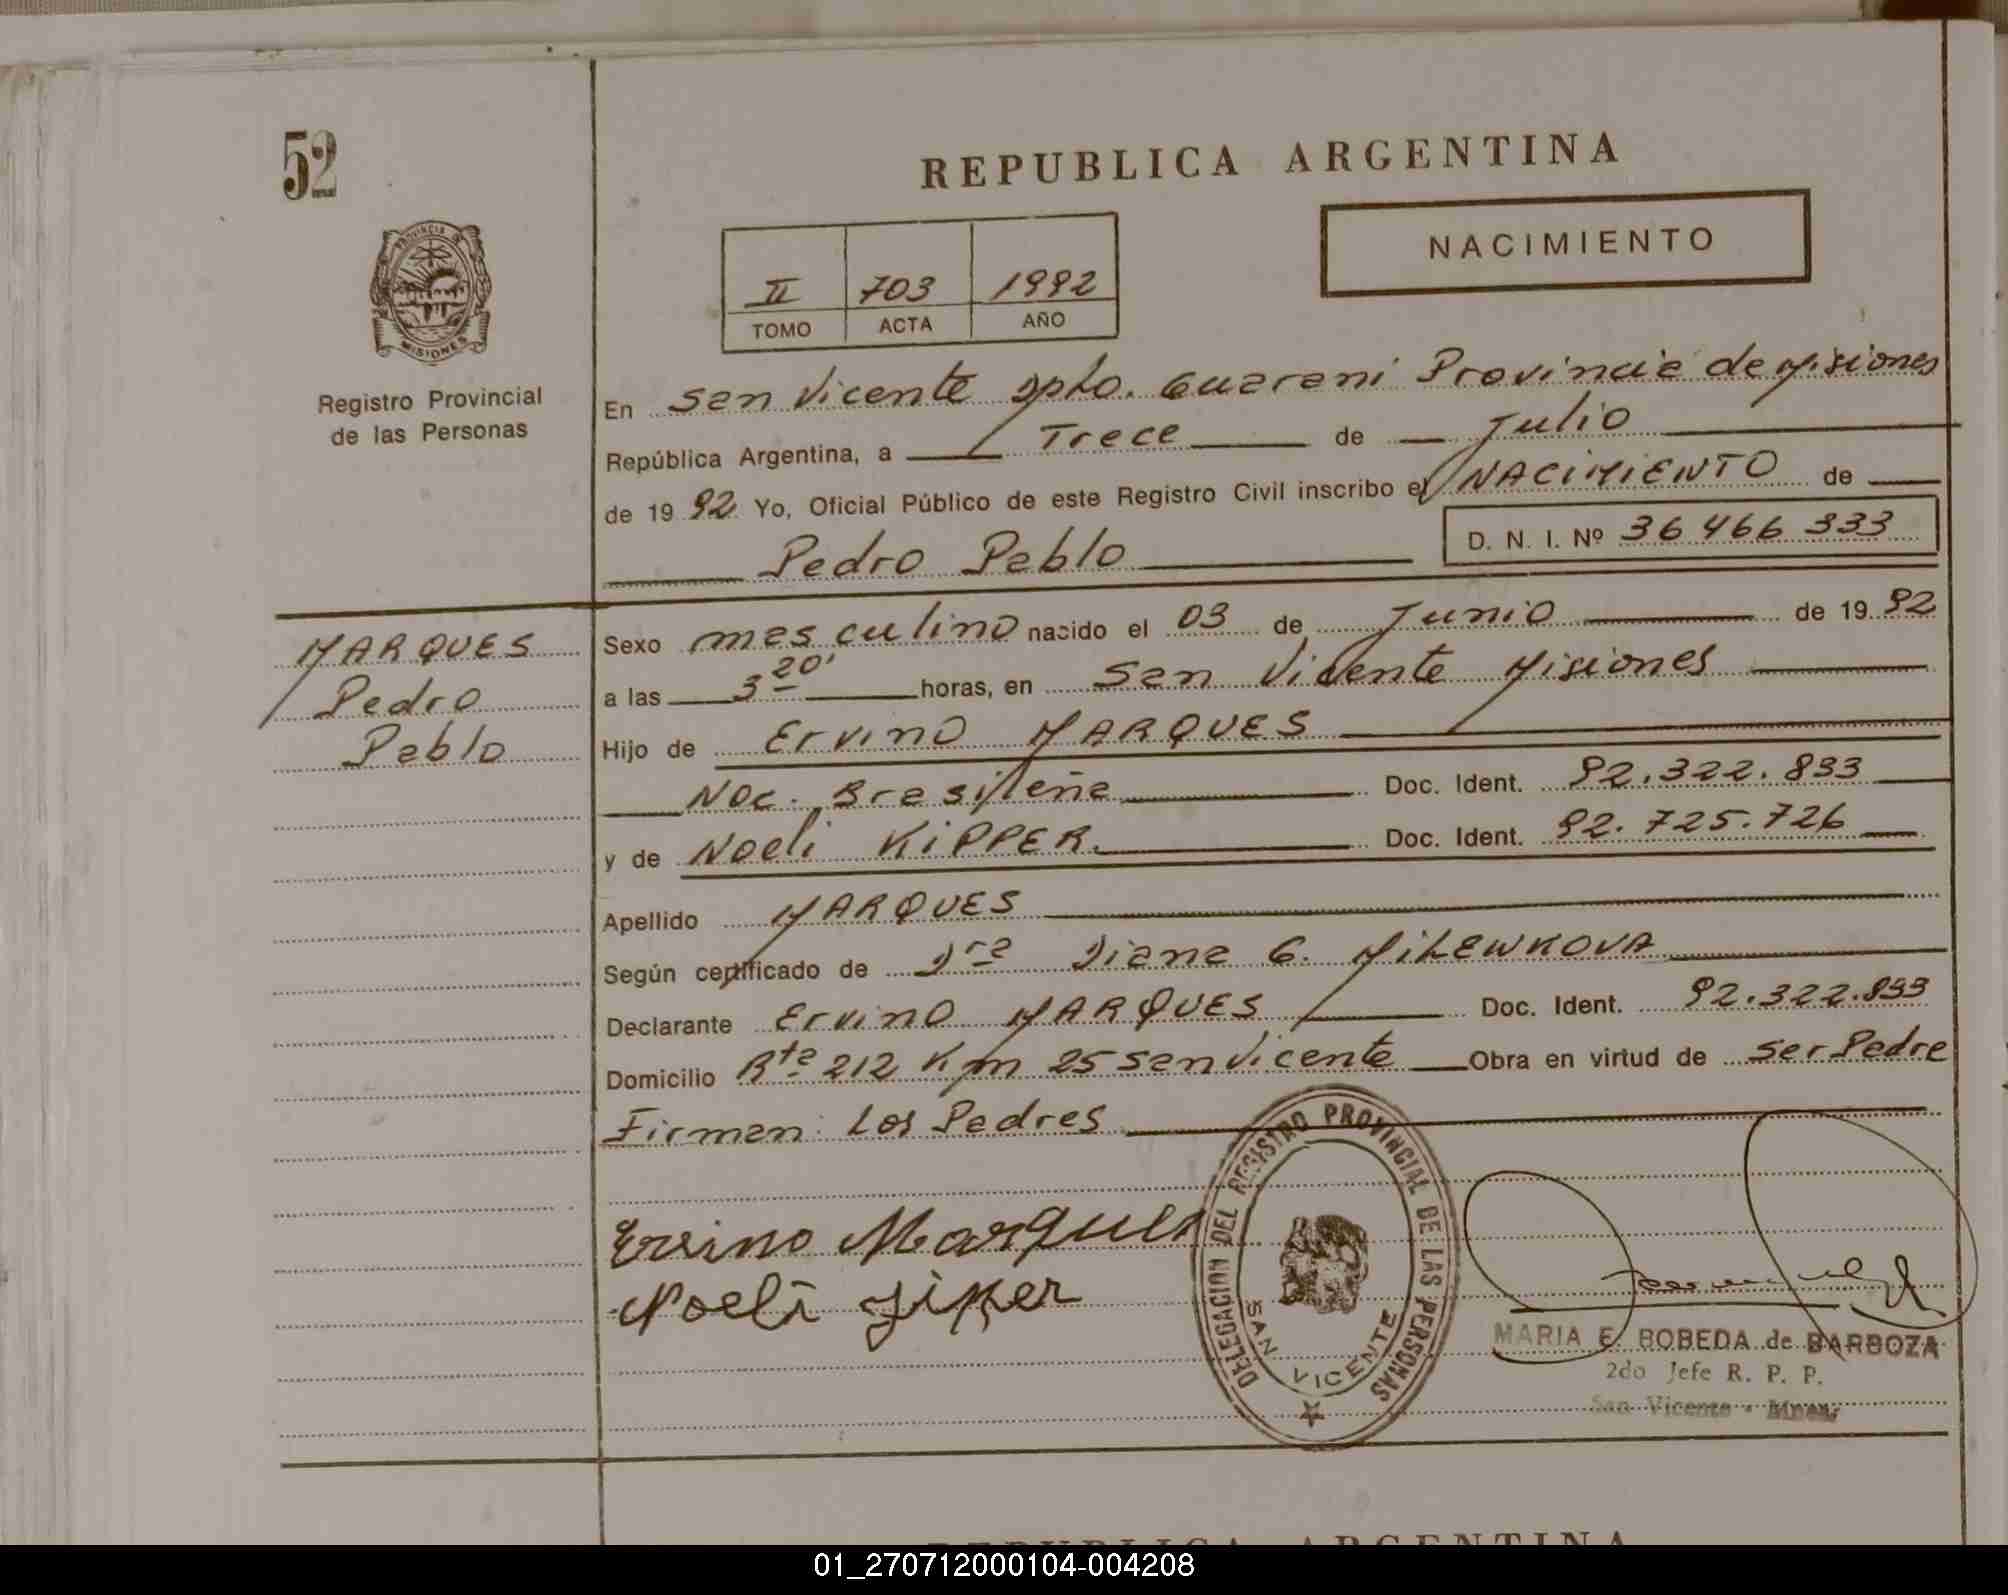 52
REPUBLICA ARGENTINA
NACIMIENTO
II 703 1992
TOMO ACTA AÑO
PROVINCIA DE
MISIONES
Registro Provincial
de las Personas
En San Vicente Dpto. Guarani Provincia de Misiones
República Argentina, a Trece de Julio
de 1992 Yo, Oficial Público de este Registro Civil inscribo el NACIMIENTO de
Pedro Pablo D. N. I. Nº 36 466 333
MARQUES
Pedro
Pablo
Sexo masculino nacido el 03 de Junio de 1992
a las 3 20' horas, en San Vicente Misiones
Hijo de Ervino MARQUES
Nac. Brasileña Doc. Ident. 92.322.833
y de Noeli KIPPER. Doc. Ident. 92.725.726
Apellido MARQUES
Según certificado de Dra Diana G. MILEWKOVA
Declarante Ervino MARQUES Doc. Ident. 92.322.833
Domicilio Rta 212 Km 25 San Vicente Obra en virtud de ser Padre
Firman: Los Padres
Ervino Marques
Noeli
DELEGACION DEL REGISTRO PROVINCIAL DE LAS PERSONAS
SAN VICENTE
MARIA E. BOBEDA de BARBOZA
2do Jefe R. P. P.
San Vicente - Mnes.
REPUBLICA ARGENTINA
01_270712000104-004208